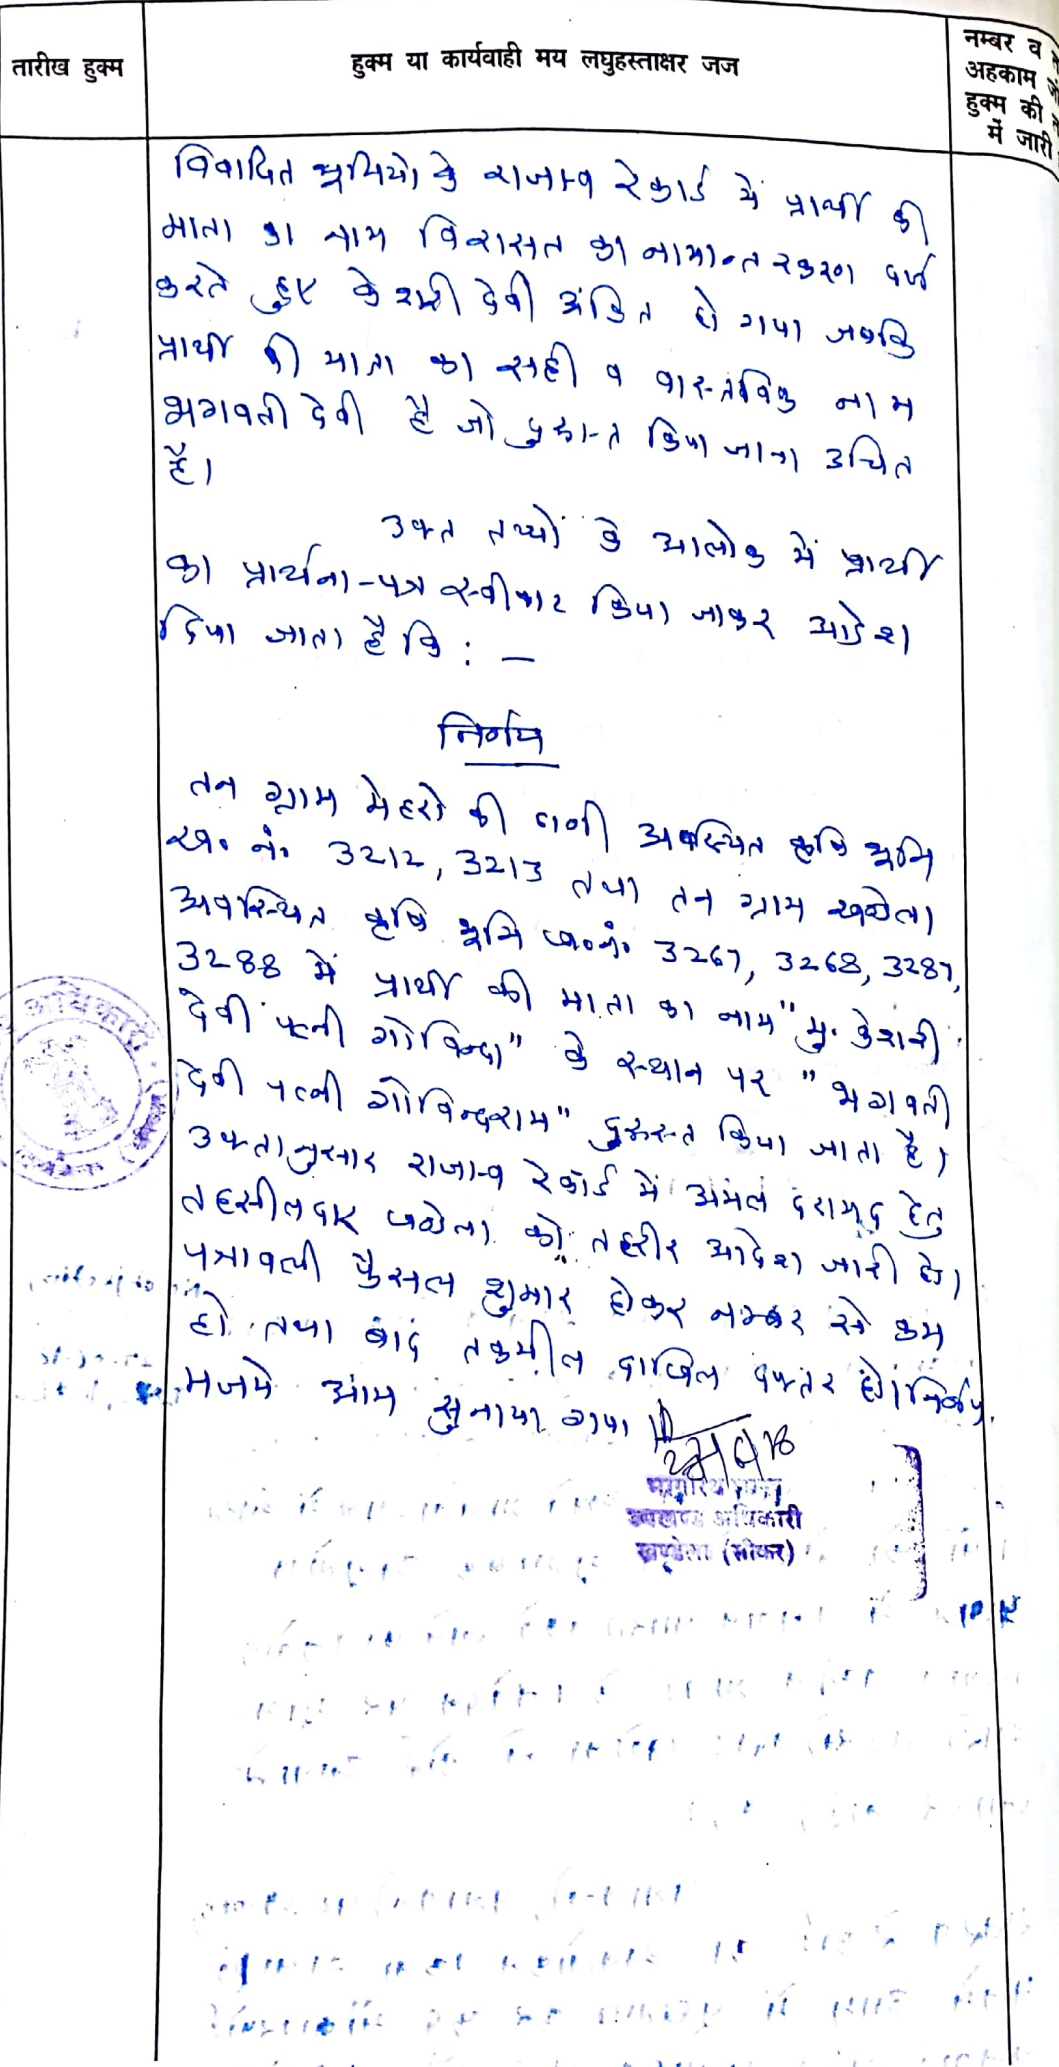 तारीख हुक्म
हुक्म या कार्यवाही मय लघुहस्ताक्षर जज
नम्बर व
अहकाम
हुक्म की
में जारी
विवादित भूमियो के राजस्व रेकार्ड में प्रार्थी की
माता का नाम विरासत का नामान्तरकरण दर्ज
करते हुए केशरी देवी अंकित हो गया जबकि
प्रार्थी की माता का सही व वास्तविक नाम
भगवती देवी है जो दुरूस्त किया जाना उचित
है।
उक्त तथ्यों के आलोक में प्रार्थी
का प्रार्थना-पत्र स्वीकार किया जाकर आदेश
दिया जाता है कि : —
निर्णय
तन ग्राम मेहरो की ढाणी अवस्थित कृषि भूमि
ख॰ नं॰ 3212, 3213 तथा तन ग्राम खण्डेला
अवस्थित कृषि भूमि ख॰नं॰ 3267, 3268, 3287,
3288 में प्रार्थी की माता का नाम "मु. केशरी
देवी पत्नी गोविन्दा" के स्थान पर "भगवती
देवी पत्नी गोविन्दराम" दुरूस्त किया जाता है।
उक्तानुसार राजस्व रेकॉर्ड में अमल दरामद हेतु
तहसीलदार खण्डेला को तहरीर आदेश जारी हो।
पत्रावली फैसल शुमार होकर नम्बर से कम
हो तथा बाद तकमील दाखिल दफ्तर हो। निर्णय
मजमे आम सुनाया गया।
उपखण्ड अधिकारी
खण्डेला (सीकर)
अधिकारी